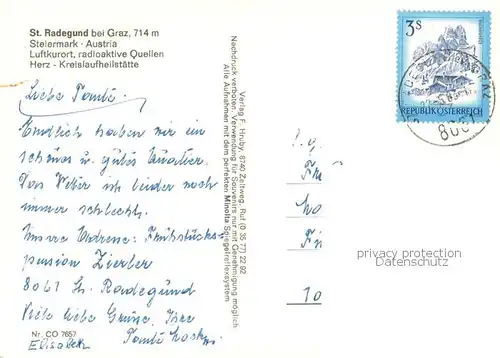 St. Radegund bei Graz, 714 m
Steiermark · Austria
Luftkurort, radioaktive Quellen
Herz - Kreislaufheilstätte
Liebe Tante
Endlich haben wir ein
schönes u. gutes Quatier.
Das Wetter ist leider noch
immer schlecht.
Unsere Adresse: Frühstücks-
pension Zierler
8061 St. Radegund
Viele liebe Grüsse, Ihre
Tante
Elisabeth
Nr. CO 7657
Verlag F. Hruby, 8740 Zeltweg, Ruf (0 35 77) 22 92
Nachdruck verboten. Verwendung für Souvenirs nur mit Genehmigung möglich
Alle Aufnahmen mit dem perfekten Minolta Spiegelreflexsystem
3 S
REPUBLIK ÖSTERREICH
GRAZ
privacy protection
Datenschutz